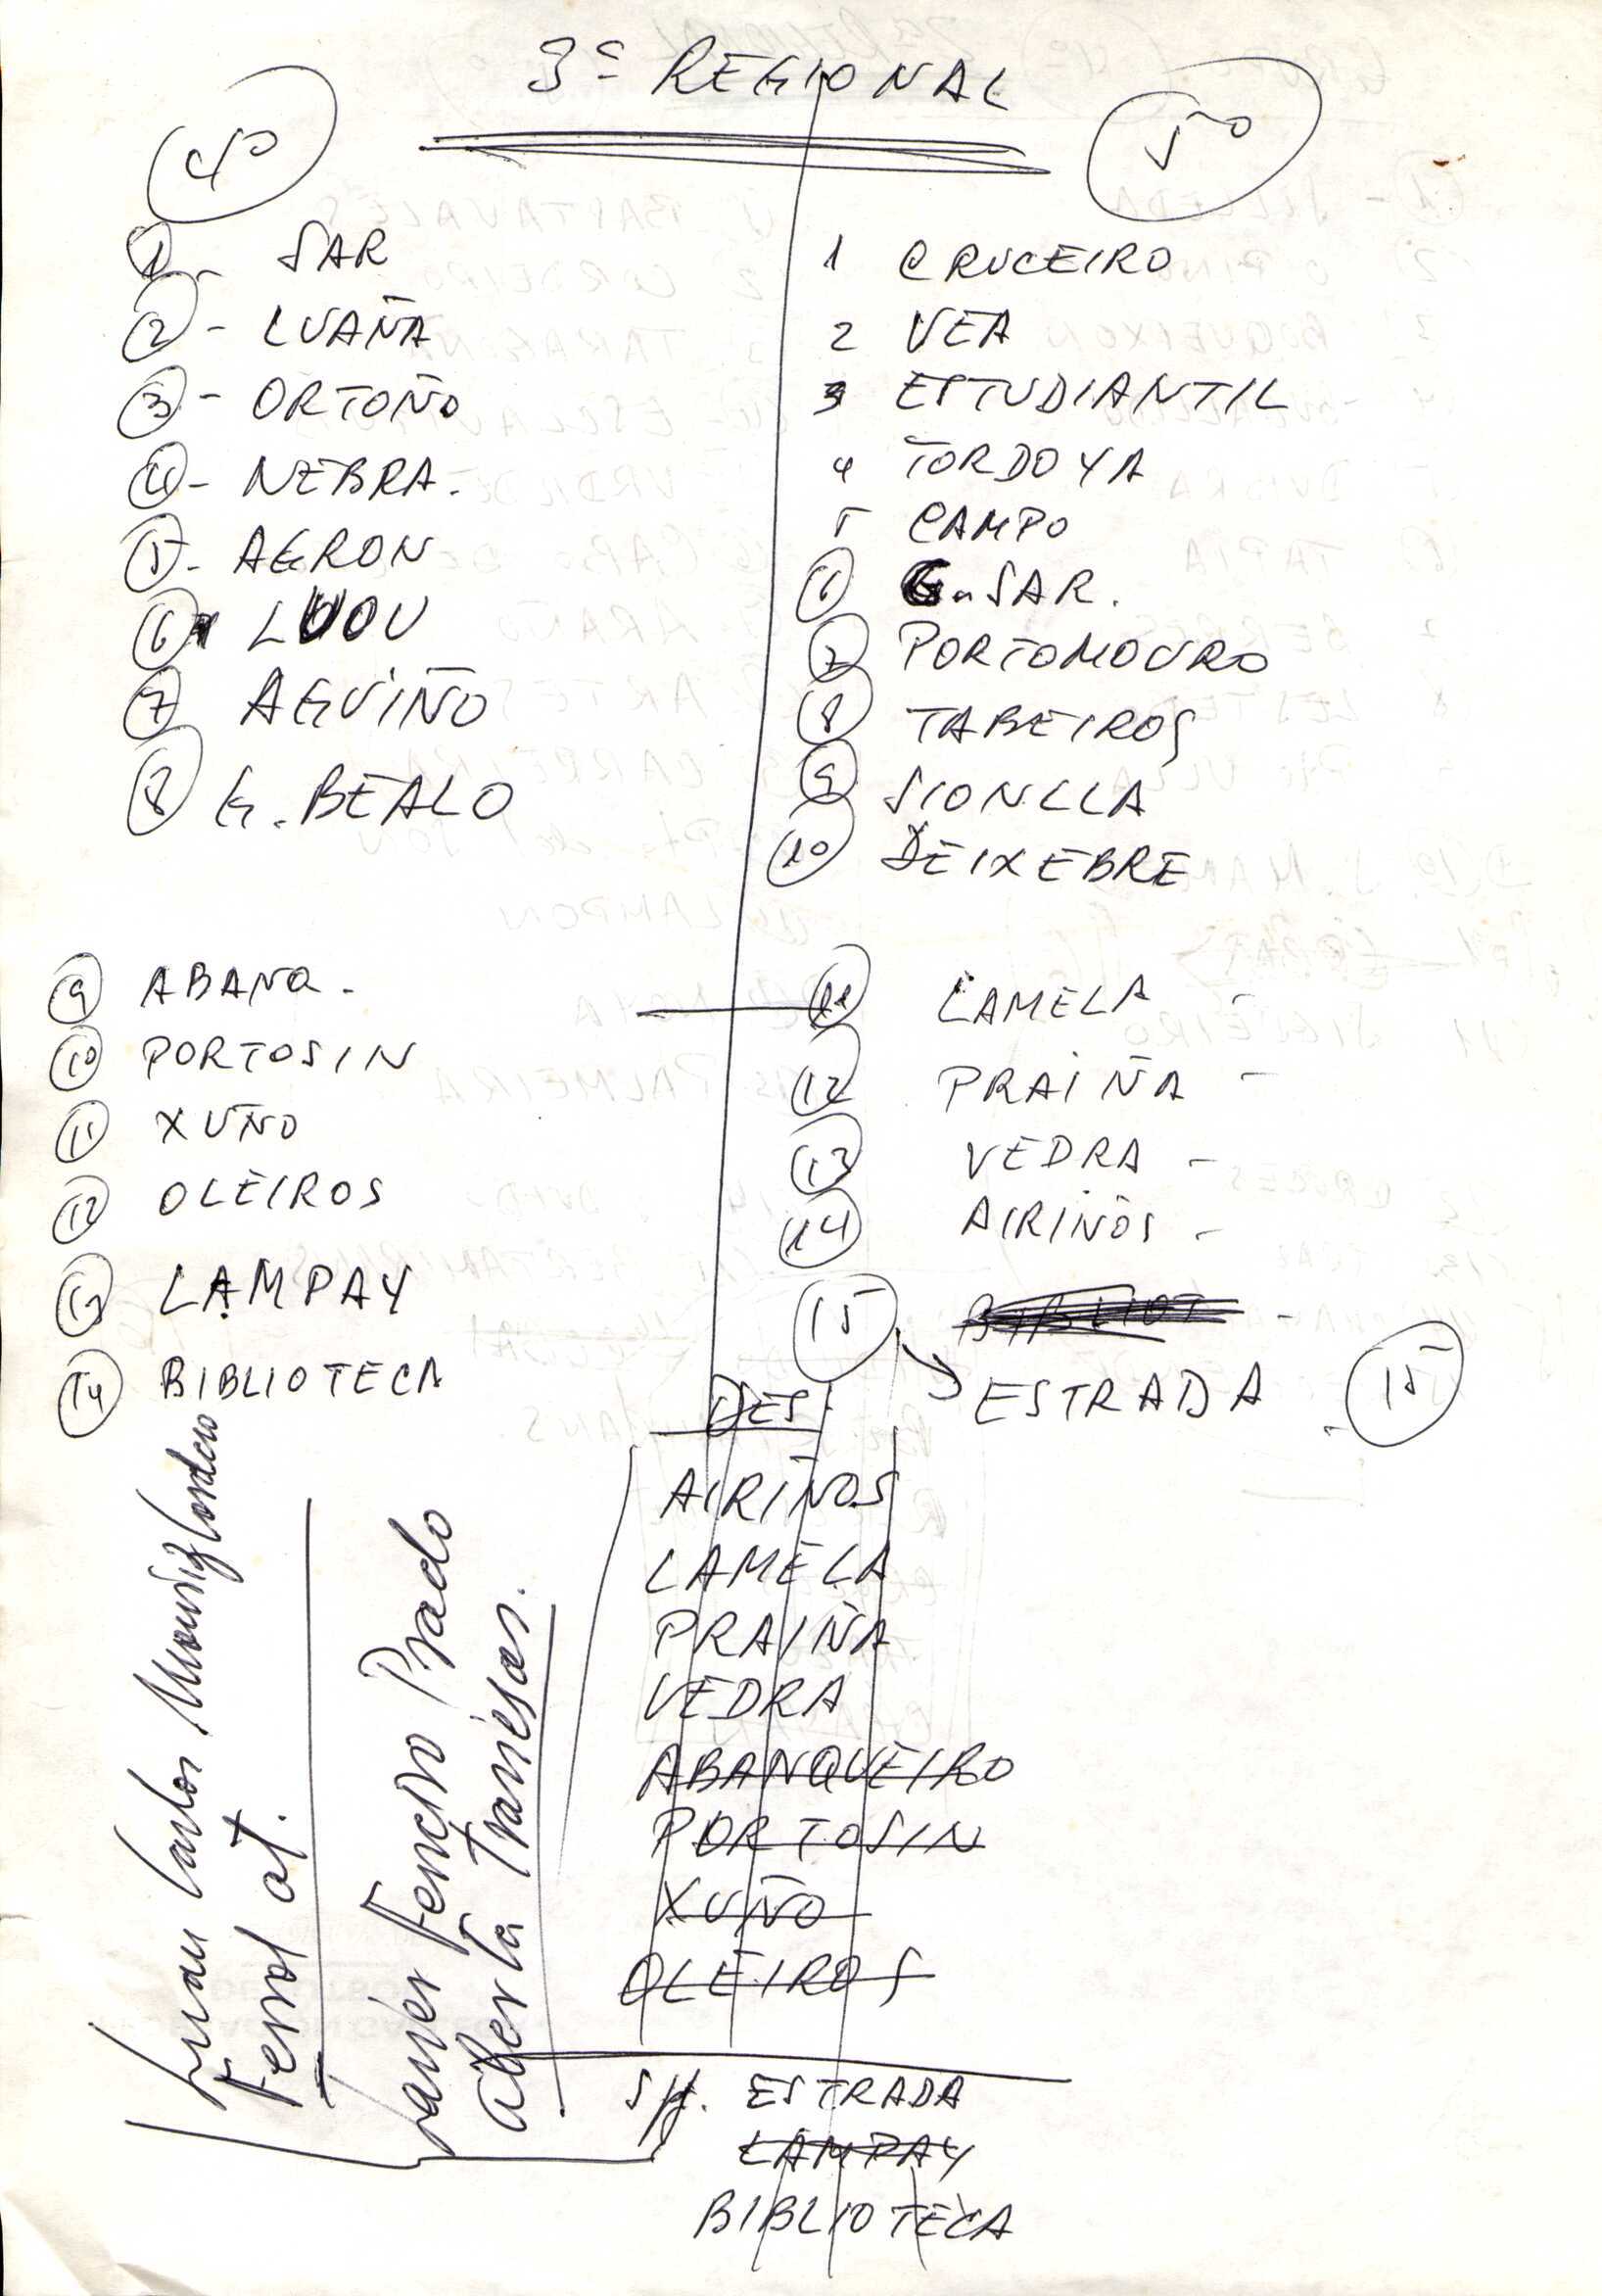 3ª REGIONAL
4º
1 - SAR
2 - LUAÑA
3 - ORTOÑO
4 - NEBRA.
5 - AGRON
6 - LUOU
7 AGUIÑO
8 G. BEALO
9 ABANQ.
10 PORTOSIN
11 XUÑO
12 OLEIROS
13 LAMPAY
14 BIBLIOTECA
5º
1 CRUCEIRO
2 VEA
3 ESTUDIANTIL
4 TORDOYA
5 CAMPO
6 G. SAR.
7 PORTOMOURO
8 TABEIROS
9 SIONLLA
10 DEIXEBRE
11 LAMELA -
12 PRAIÑA -
13 VEDRA -
14 AIRIÑOS -
15 BIBLIOT -
ESTRADA 15
DES.
AIRIÑOS
LAMELA
PRAIÑA
VEDRA
ABANQUEIRO
PORTOSIN
XUÑO
OLEIROS
ESTRADA
LAMPAY
BIBLIOTECA
Juan Carlos
Ferrol at.
Javier Prado